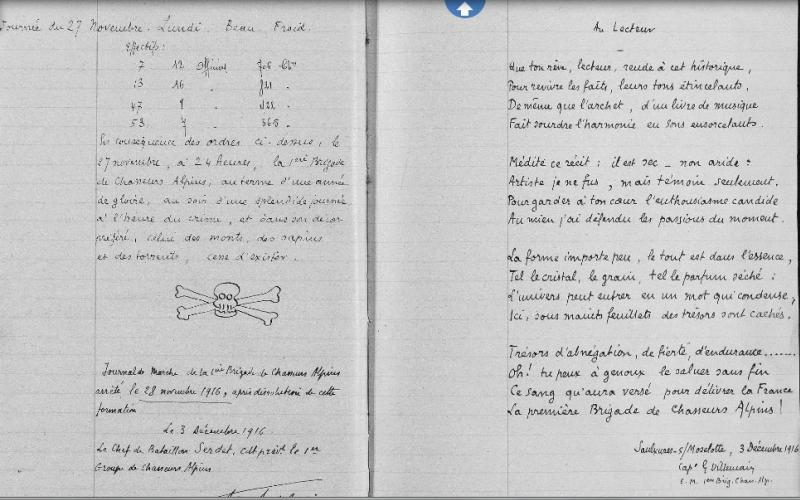 Journée du 27 Novembre. Lundi. Beau. Froid.
Effectifs:
7 12 Officiers
13 16
47 9
53 7 568 "
En conséquence des ordres ci-dessus, le
27 novembre, à 24 heures, la 1ère Brigade
de Chasseurs Alpins, au terme d'une année
de gloire, au soir d'une splendide journée
à l'heure du crime, et dans son décor
préféré, celui des monts, des sapins
et des torrents, cesse d'exister.
Journal de Marche de la 1ère Brigade de Chasseurs Alpins
arrêté le 28 novembre 1916, après dissolution de cette
formation
Le 3 Décembre 1916.
Le Chef de Bataillon Serdet, cdt le 1er
Groupe de Chasseurs Alpins
Au Lecteur
Que ton rêve, lecteur, rende à cet historique,
Pour revivre les faits, leurs tons étincelants.
De même que l'archet, d'un livre de musique
Fait sourdre l'harmonie en sons ensorcelants.
Médite ce récit : il est sec _ non aride :
Artiste je ne fus, mais témoin seulement.
Pour garder à ton cœur l'enthousiasme candide
Au mien j'ai défendu les passions du moment.
La forme importe peu, le tout est dans l'essence,
Tel le cristal, le grain, tel le parfum séché :
L'univers peut entrer en un mot qui condense,
Ici, sous maints feuillets des trésors sont cachés.
Trésors d'abnégation, de fierté, d'endurance.......
Oh! tu peux à genoux le saluer sans fin
Ce sang qu'aura versé pour délivrer la France
La première Brigade de Chasseurs Alpins !
Saulxures-s/Moselotte, 3 Décembre 1916
Capne G Villemain
E. M. 1ère Brig. Chass. Alp.